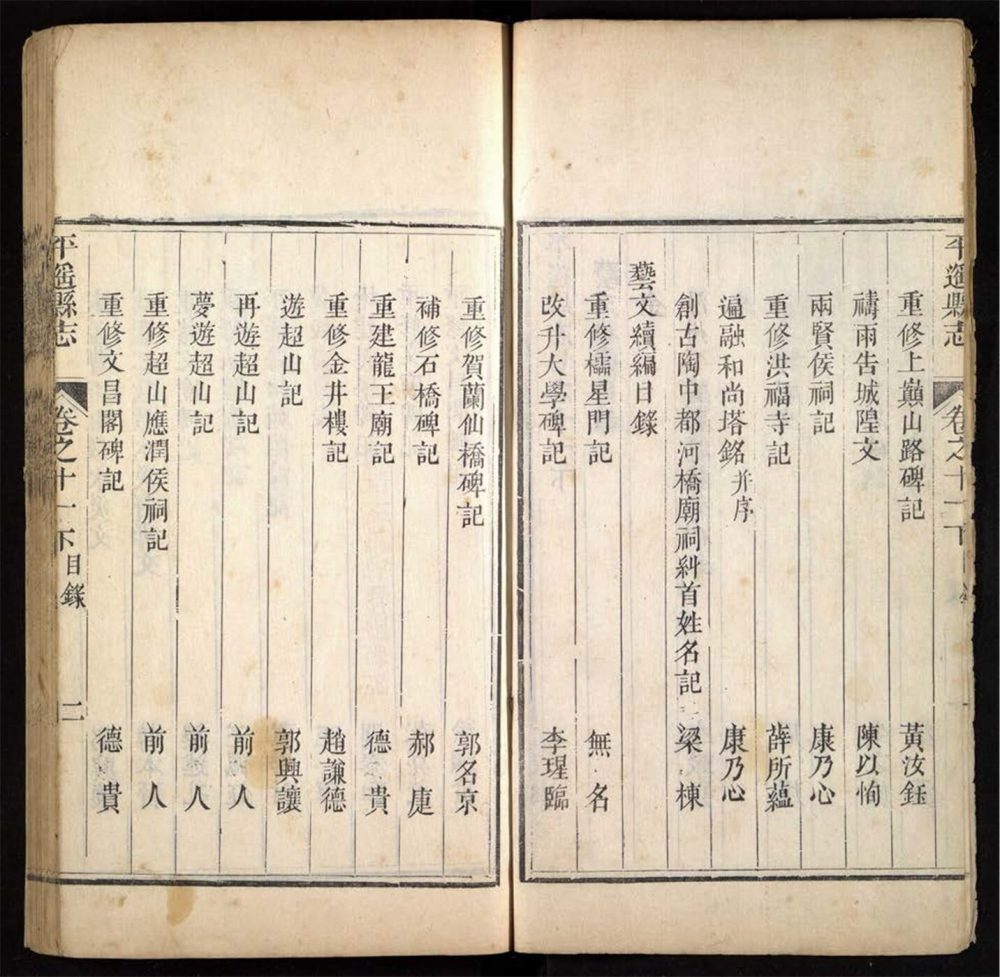 平遙縣志 卷之十一下
重修上巔山路碑記 黃汝鈺
禱雨告城隍文 陳以恂
兩賢侯祠記 康乃心
重修洪福寺記 薛所蘊
遍融和尚塔銘并序 康乃心
創古陶中都河橋廟祠糾首姓名記 梁棟
藝文續編目錄
重修櫺星門記 無名
改升大學碑記 李瑆臨
重修賀蘭仙橋碑記 郭名京
補修石橋碑記 郝
重建龍王廟記 德貴
重修金井樓記 趙謙德
遊超山記 郭興讓
再遊超山記 前人
夢遊超山記 前人
重修超山應潤侯祠記 前人
重修文昌閣碑記 德貴
平遙縣志 卷之十一下 目錄 二